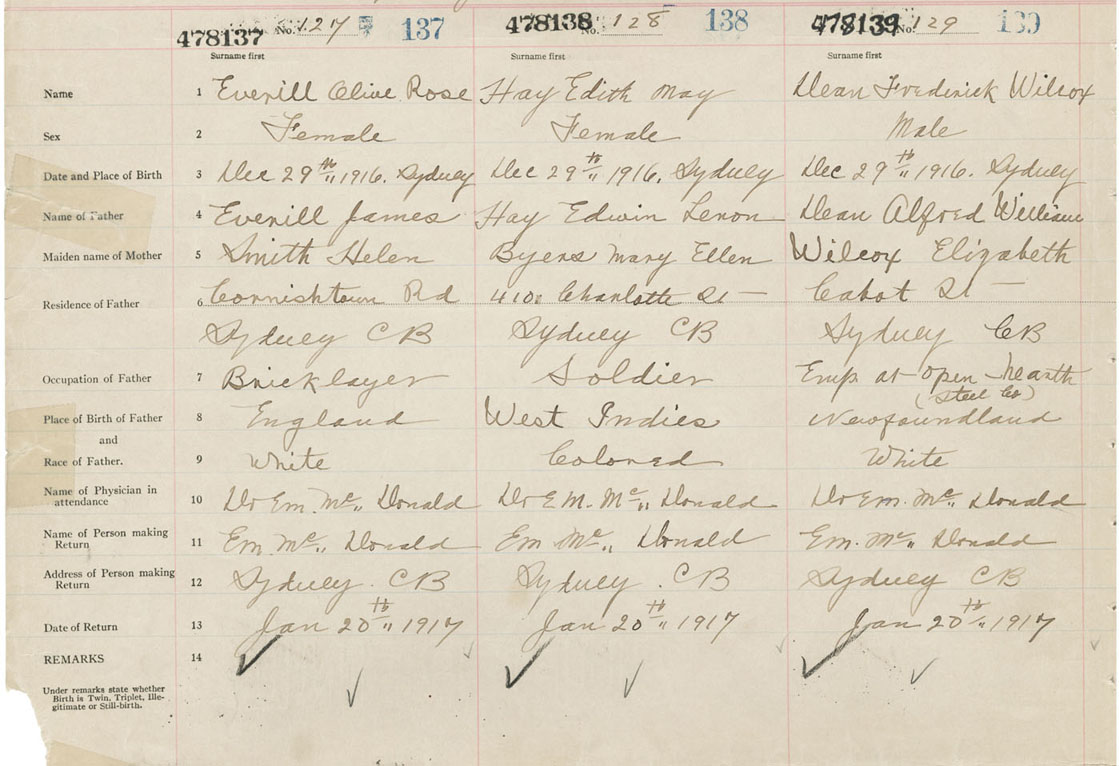 478137 No. 127 137 478138 No. 128 138 478139 No. 129 139
Surname first Surname first Surname first
Name 1 Everill Olive Rose Hay Edith May Dean Frederick Wilcox
Sex 2 Female Female Male
Date and Place of Birth 3 Dec 29th „ 1916. Sydney Dec 29th „ 1916. Sydney Dec 29th „ 1916. Sydney
Name of Father 4 Everill James Hay Edwin Lenon Dean Alfred William
Maiden name of Mother 5 Smith Helen Byers Mary Ellen Wilcox Elizabeth
Residence of Father 6 Cornishtown Rd Charlotte St — Cabot St —
Sydney CB Sydney CB Sydney CB
Occupation of Father 7 Bricklayer Soldier Emp at open hearth
(Steel Co)
Place of Birth of Father 8 England West Indies Newfoundland
and
Race of Father. 9 White Colored White
Name of Physician in
attendance 10 Dr Em. Mc„ Donald Dr E M. Mc„ Donald Dr Em. Mc„ Donald
Name of Person making
Return 11 Em Mc„ Donald Em Mc„ Donald Em. Mc„ Donald
Address of Person making
Return 12 Sydney . CB Sydney . CB Sydney CB
Date of Return 13 Jan 20th „ 1917 Jan 20th „ 1917 Jan 20th „ 1917
REMARKS 14
Under remarks state whether
Birth is Twin, Triplet, Ille-
gitimate or Still-birth.